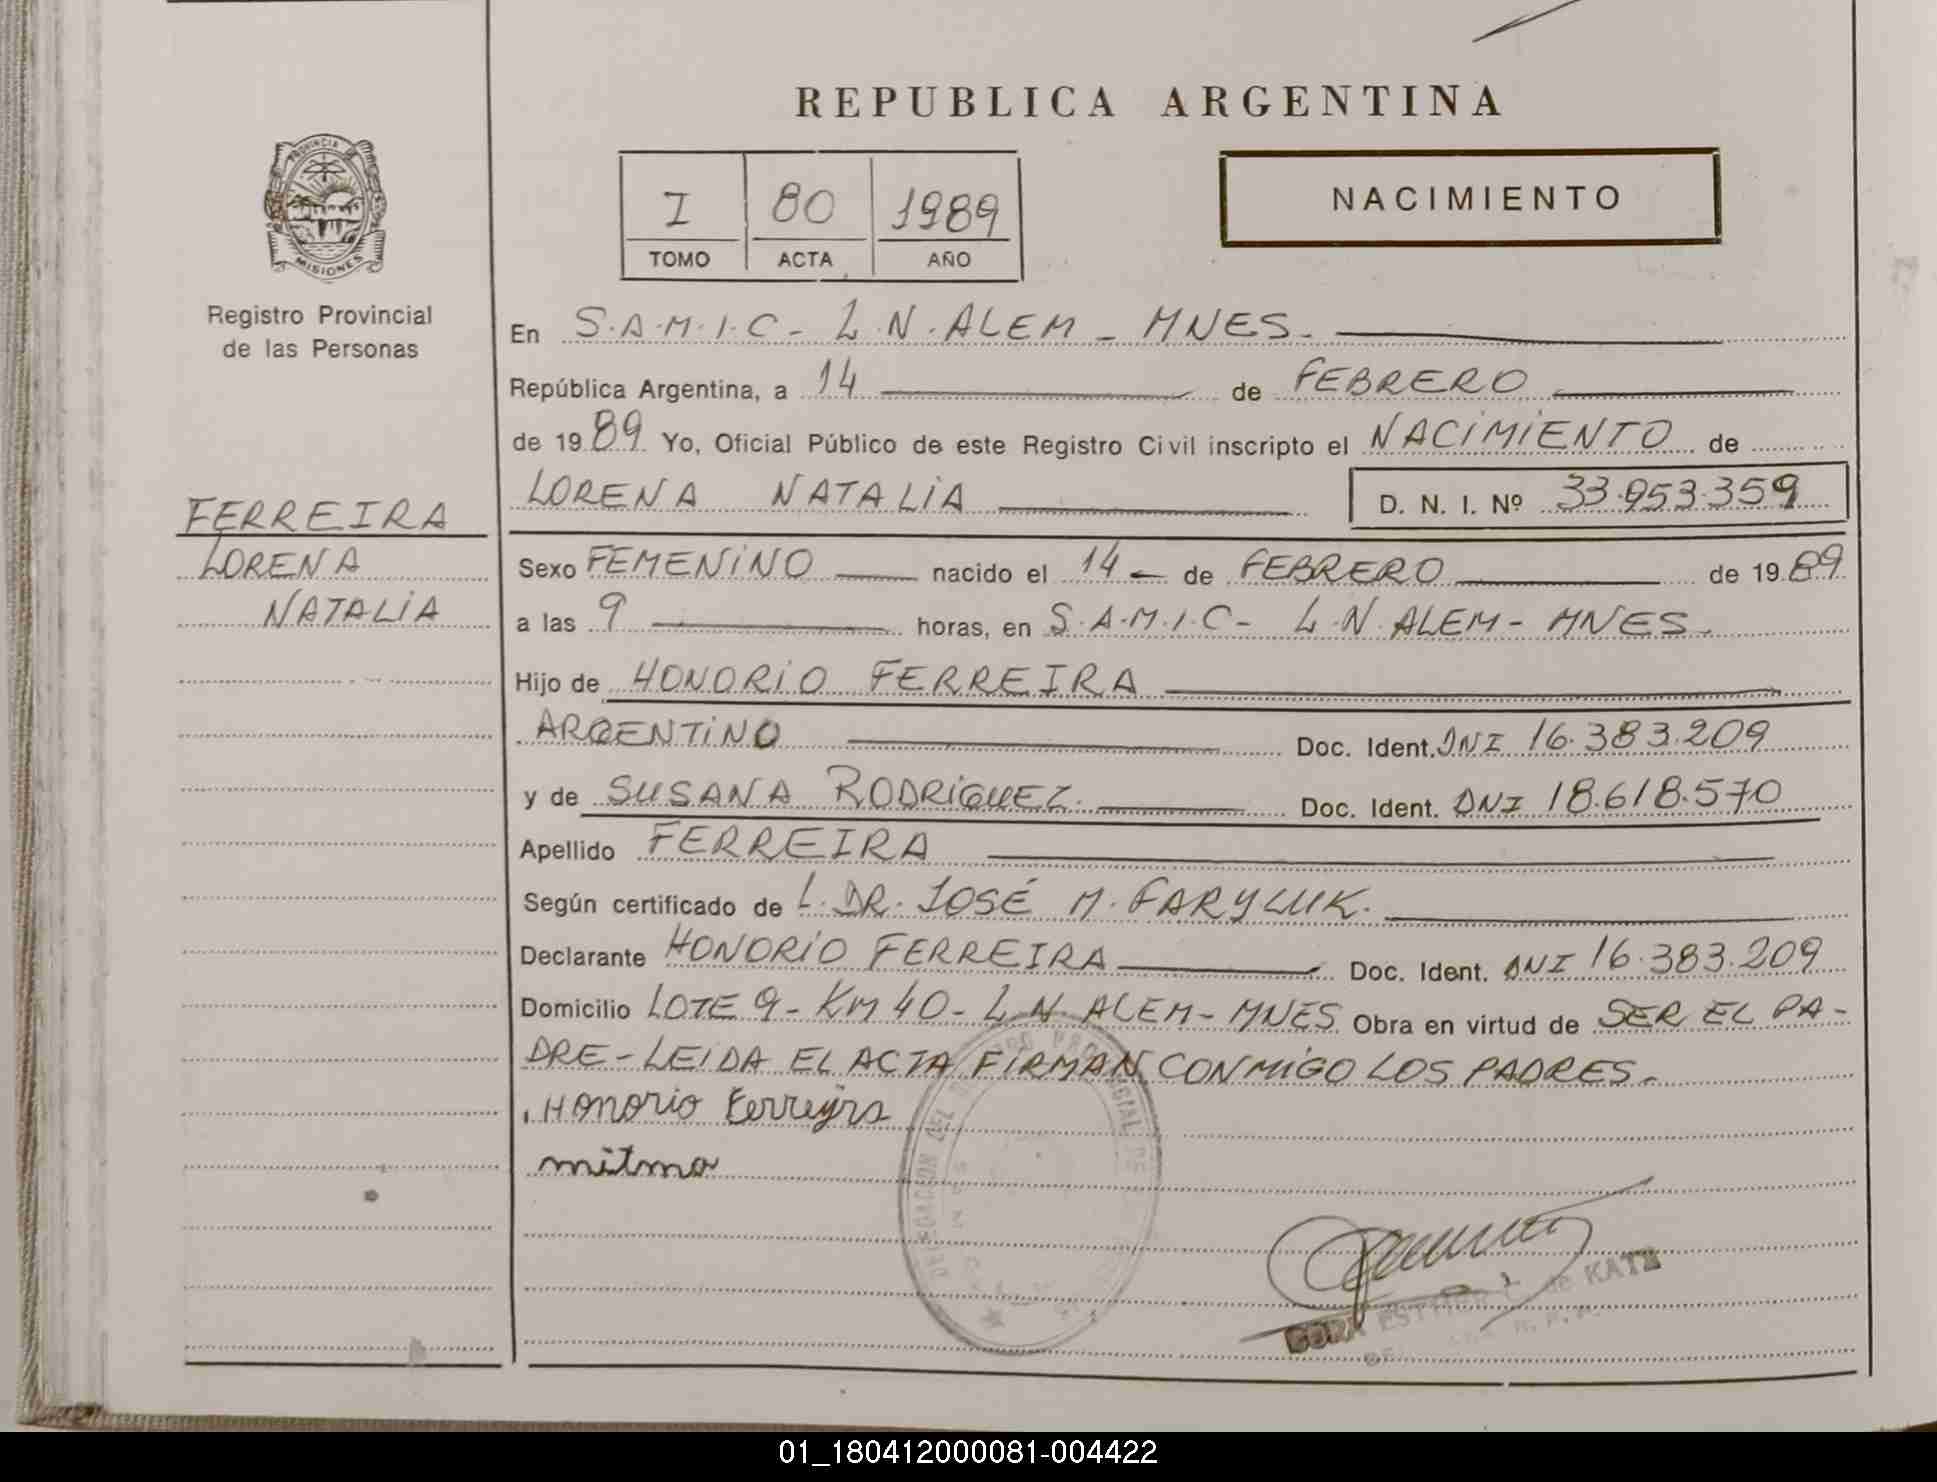 REPUBLICA ARGENTINA
PROVINCIA DE
MISIONES
Registro Provincial
de las Personas
I 80 1989
TOMO ACTA AÑO
NACIMIENTO
En S.A.M.I.C - L.N. ALEM - MNES.
República Argentina, a 14 de FEBRERO
de 1989 Yo, Oficial Público de este Registro Civil inscripto el NACIMIENTO de
LORENA NATALIA D. N. I. Nº 33.953.359
FERREIRA
LORENA
NATALIA
Sexo FEMENINO nacido el 14 - de FEBRERO de 1989
a las 9 horas, en S.A.M.I.C - L.N. ALEM - MNES.
Hijo de HONORIO FERREIRA
ARGENTINO Doc. Ident. DNI 16.383.209
y de SUSANA RODRIGUEZ. Doc. Ident. DNI 18.618.570
Apellido FERREIRA
Según certificado de L. DR. JOSÉ M. GARYLUK.
Declarante HONORIO FERREIRA Doc. Ident. DNI 16.383.209
Domicilio LOTE 9 - KM 40 - L N. ALEM - MNES Obra en virtud de SER EL PA-
DRE - LEIDA EL ACTA FIRMAN CONMIGO LOS PADRES.
Honorio Ferreyra
DELEGACION DEL REGISTRO PROVINCIAL DE
ESTHER C. de KATZ
01_180412000081-004422